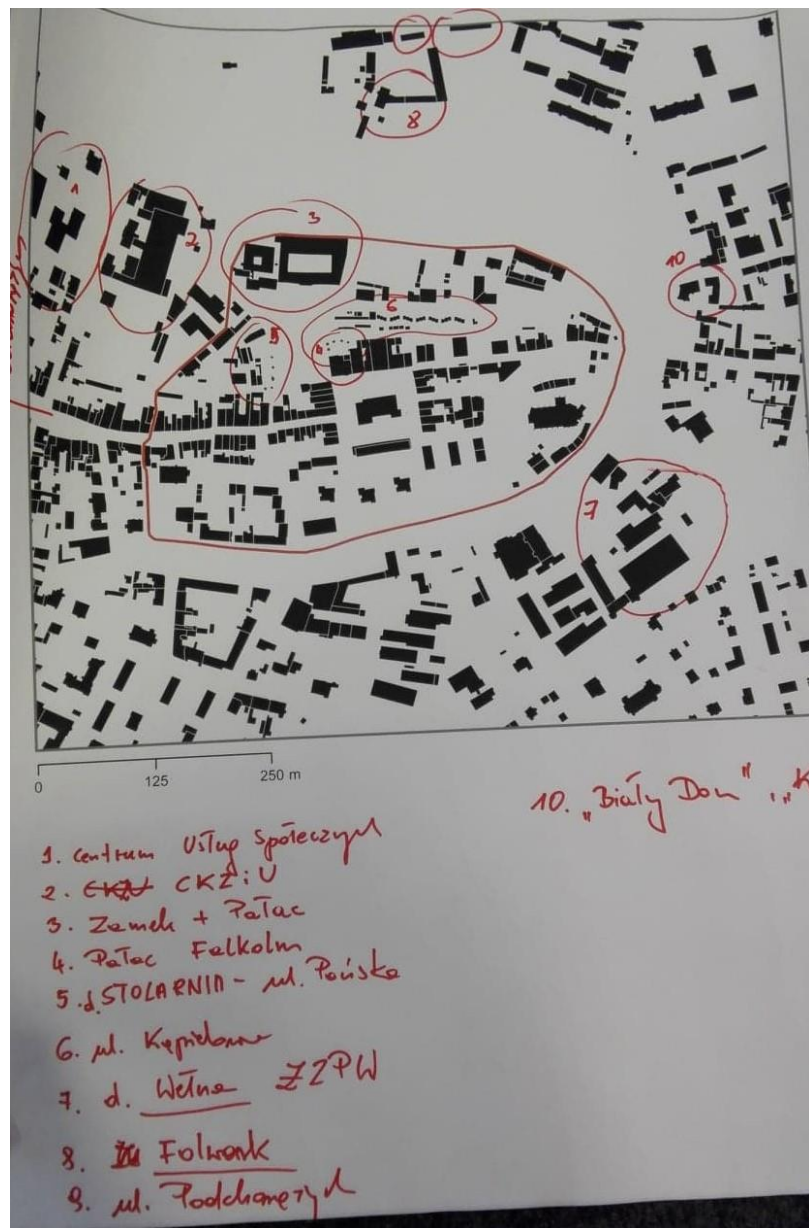 1
2
3
10
8
6
5
4
7
0 125 250 m
10. „Biały Dom", „K
1. Centrum Usług Społeczych
2. CKZiU
3. Zamek + Pałac
4. Pałac
5. d. STOLARNIA - ul. Pańska
6. ul. Kąpielowa
7. d. Wełna ZZPW
8. Folwark
9. ul. Podchorężych